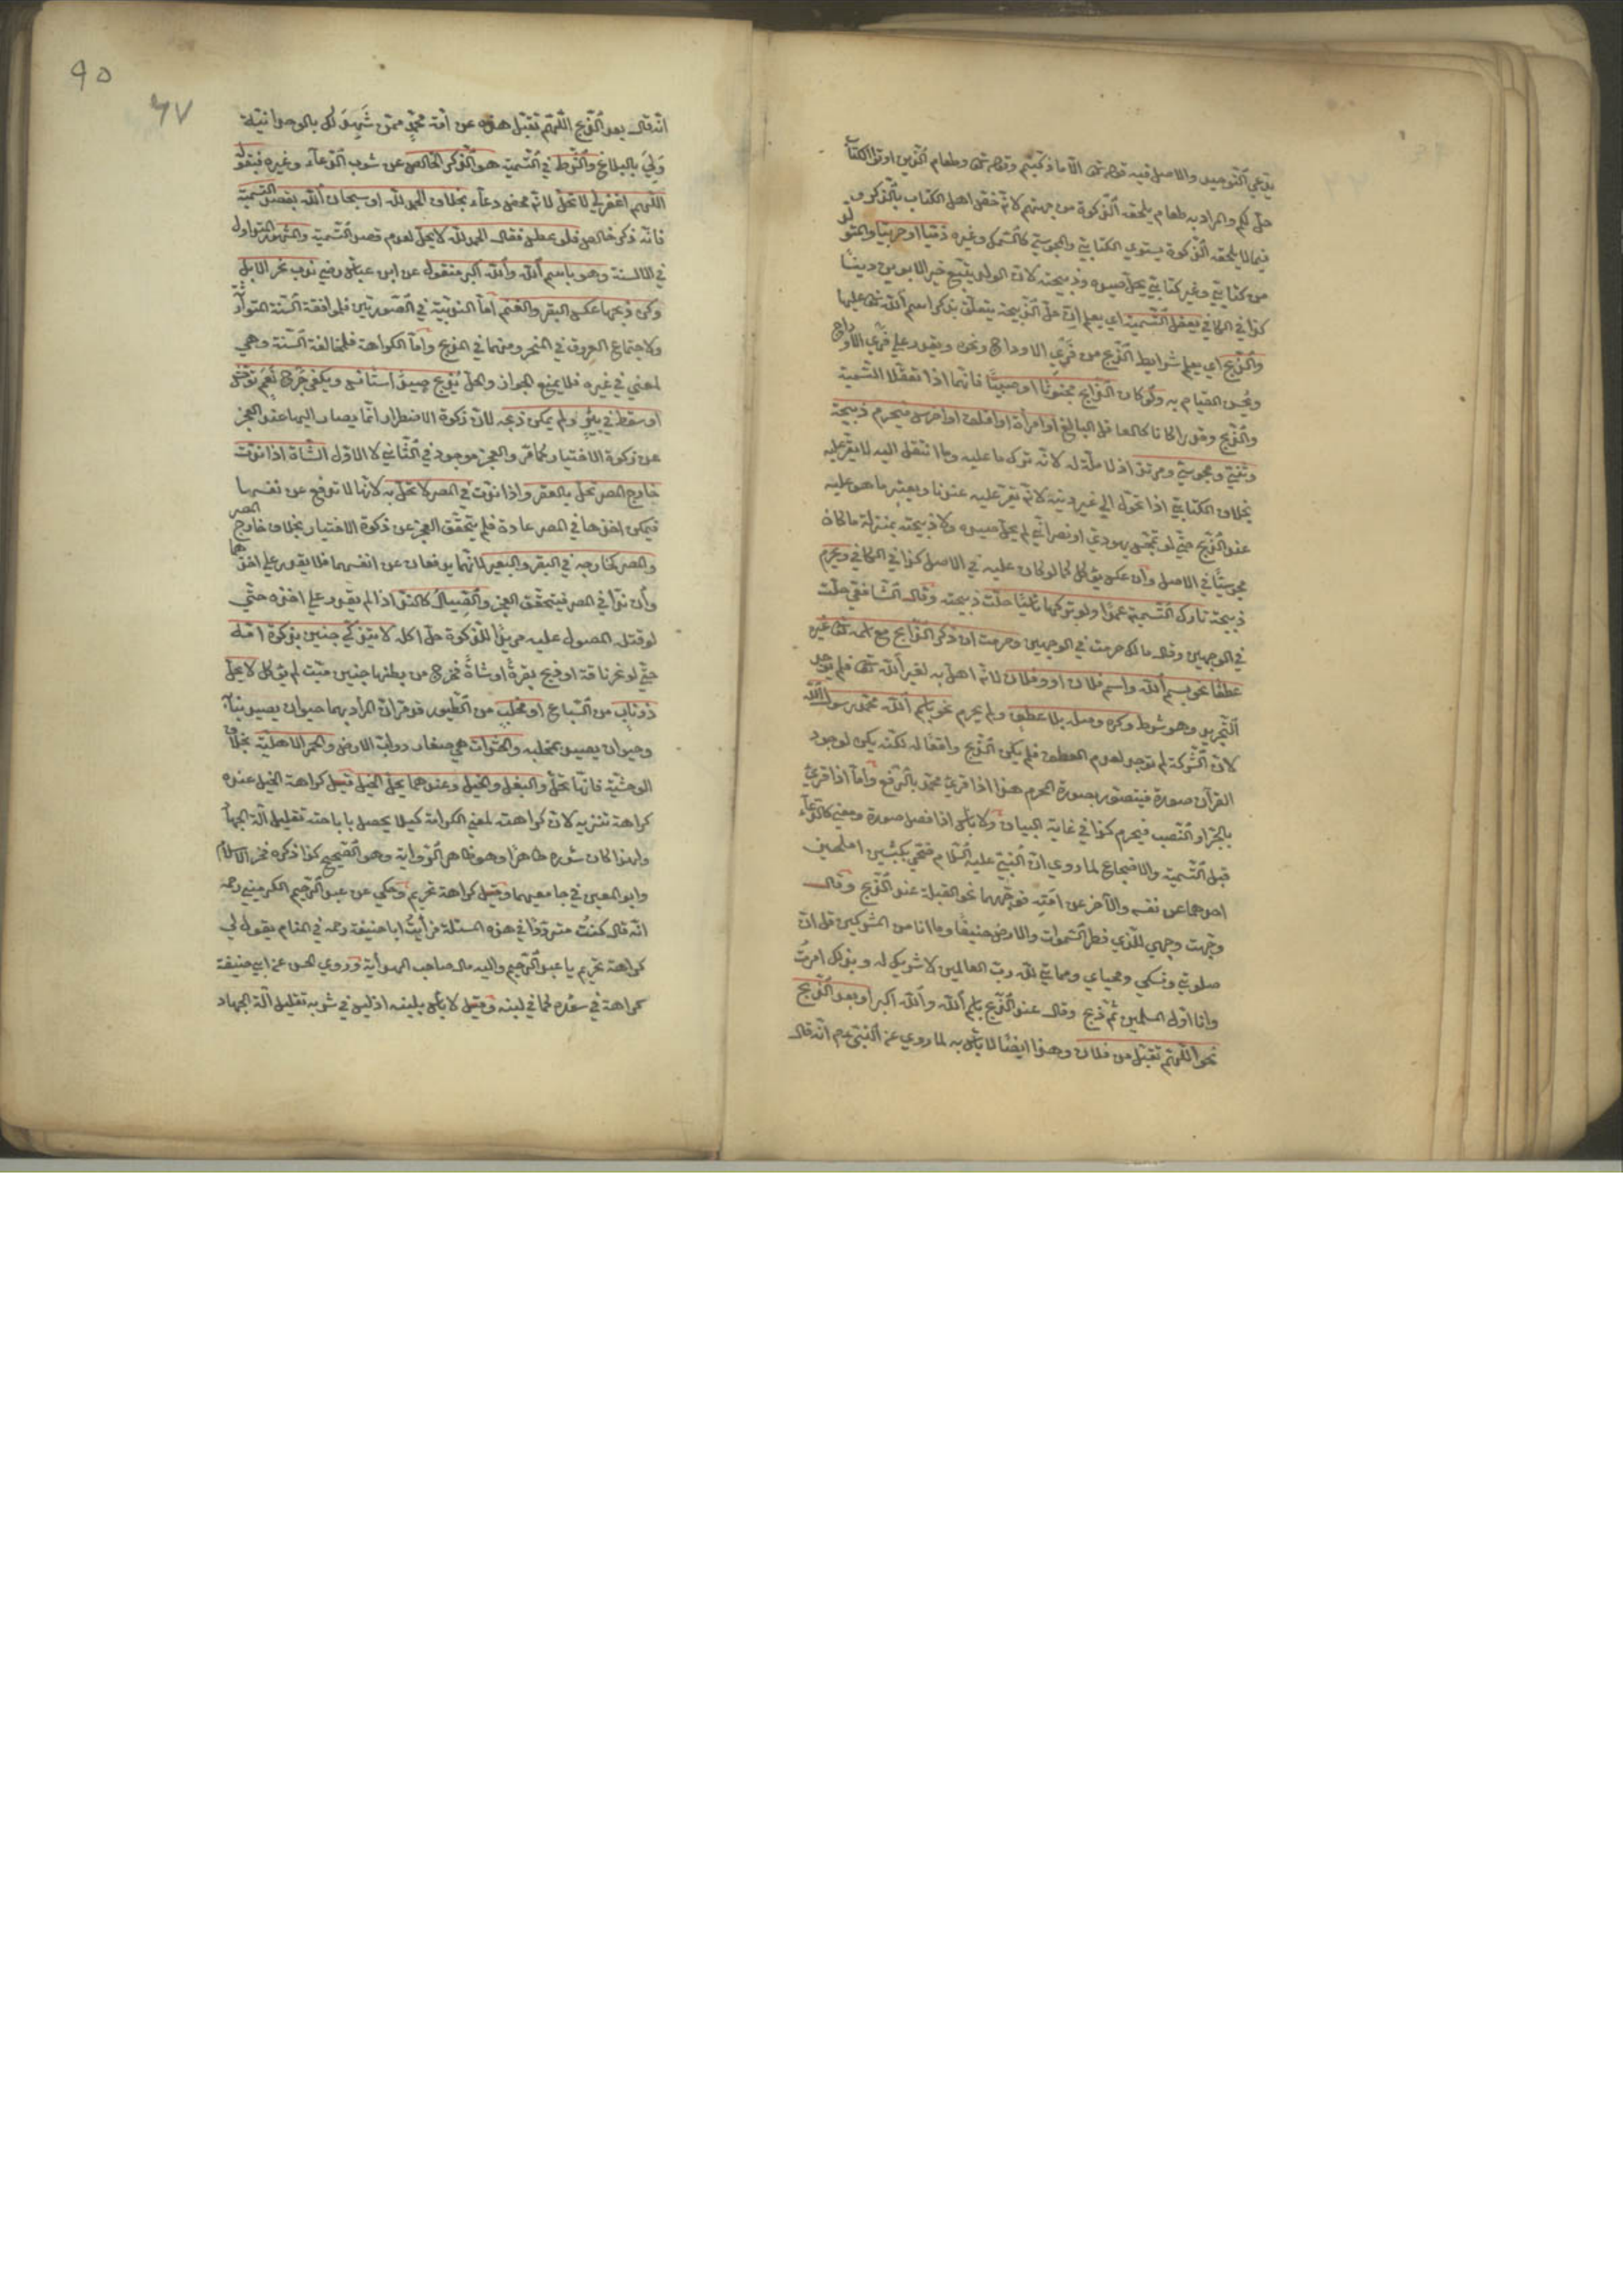 يدعي التوحيد والاصل فيه قوله تعالى الا ما ذكيتم وقوله تعالى وطعام الذين اوتوا الكتاب
حل لكم والمراد به طعام يلحقه الذكوة من جهتهم لانه خص اهل الكتاب بالذكر و
فيما لا يلحقه الذكوة يستوي الكتابي والمجوسي كالسمك وغيره ذميا او حربيا والمتولد
من كتابي وغير كتابي يحل صيده وذبيحته لان الولد يتبع خير الابوين دينا
كذا في الكافي يعقل التسمية اي يعلم ان حل الذبيحة يتعلق بذكر اسم الله تعالى عليها
والذبح اي يعلم شرايط الذبح من فري الاوداج ونحوه ويقدر على فري الاوداج
ويحسن القيام به ولو كان الذابح مجنونا او صبيا فانهما اذا تعقلا التسمية
والذبح وقدرا كانا كالعاقل البالغ او امرأة او اقلف او اخرس فيحرم ذبيحة
وثني ومجوسي ومرتد اذ لا ملة له لانه ترك ما عليه وما انتقل اليه لا يقر عليه
بخلاف الكتابي اذا تحول الى غير دينه لانه يقر عليه عندنا ويعتبر ما هو عليه
عند الذبح حتى لو تمجس يهودي او نصراني لم يحل صيده ولا ذبيحته بمنزلة ما لو كان
مجوسيا في الاصل وان عكس يؤكل كما لو كان عليه في الاصل كذا في الكافي ويحرم
ذبيحة تارك التسمية عمدا ولو تركها ناسيا حلت ذبيحته وقال الشافعي حلت
في الوجهين وقال مالك حرمت في الوجهين وحرمت ان ذكر الذابح مع اسمه تعالى غيره
عطفا نحو بسم الله واسم فلان او وفلان لانه اهل به لغير الله تعالى فلم يوجد
التجريد وهو شرط وكره وصله بلا عطف ولم يحرم نحو باسم الله محمد رسول الله
لان الشركة لم توجد لعدم العطف فلم يكن الذبح واقعا له لكنه يكره لوجود
القران صورة فيتصور بصورة المحرم هذا اذا قرئ محمد بالرفع واما اذا قرئ
بالجر او النصب فيحرم كذا في غاية البيان ولا بأس اذا فصل صورة ومعنى كالدعاء
قبل التسمية والاضجاع لما روي ان النبي عليه السلام ضحى بكبشين املحين
احدهما عن نفسه والآخر عن امته فوجههما نحو القبلة عند الذبح وقال
وجهت وجهي للذي فطر السموات والارض حنيفا وما انا من المشركين قل ان
صلوتي ونسكي ومحياي ومماتي لله رب العالمين لا شريك له وبذلك امرت
وانا اول المسلمين ثم ذبح وقال عند الذبح باسم الله والله اكبر او بعد الذبح
نحو اللهم تقبل من فلان وهذا ايضا لا بأس به لما روي عن النبي عم انه قال
٩٥
٦٧
انه قال بعد الذبح اللهم تقبل هذه عن امة محمد ممن شهد لك بالوحدانية
ولي بالبلاغ والشرط في التسمية هو الذكر الخالص عن شوب الدعاء وغيره فبقوله
اللهم اغفر لي لا تحل لانه محض دعاء بخلاف الحمد لله او سبحان الله بقصد التسمية
فانه ذكر خالص فلو عطس فقال الحمد لله لا يحل لعدم قصد التسمية والمشهور المتداول
في الالسنة وهو باسم الله والله اكبر منقول عن ابن عباس رضي ندب نحر الابل
وكره ذبحها عكس البقر والغنم اما الندبية في الصورتين فلموافقة السنة المتوارثة
ولاجتماع العروق في المنحر ومنهما في المذبح واما الكراهة فلمخالفة السنة وهي
لمعنى في غيره فلا يمنع الجواز والحل يذبح صيد استأنس ويكفي جرح نعم توحش
او سقط في بئر ولم يمكن ذبحه لان ذكوة الاضطرار انما يصار اليها عند العجز
عن ذكوة الاختيار كما مر والعجز موجود في الثاني لا الاول الشاة اذا ندت
خارج المصر تحل بالعقر واذا ندت في المصر لا تحل به لانها لا تدفع عن نفسها
فيمكن اخذها في المصر عادة فلم يتحقق العجز عن ذكوة الاختيار بخلاف خارج المصر
والمصر كخارجه في البقر والبعير لانهما يدفعان عن انفسهما فلا يقدر على اخذهما
وان ندا في المصر فيتحقق العجز والصيال كالند اذا لم يقدر على اخذه حتى
لو قتله المصول عليه مريدا للذكوة حل اكله لا يتذكى جنين بذكوة امه
حتى لو نحر ناقة او ذبح بقرة او شاة فخرج من بطنها جنين ميت لم يؤكل لا يحل
ذو ناب من السباع او مخلب من الطيور قد مر ان المراد بهما حيوان يصيد بنابه
وحيوان يصيد بمخلبه والحشرات هي صغار دواب الارض والحمر الاهلية بخلاف
الوحشية فانها تحل والبغل والخيل وعندهما يحل الخيل قيل كراهة الخيل عنده
كراهة تنزيه لان كراهته لمعنى الكرامة كيلا يحصل باباحته تقليل آلة الجهاد
ولهذا كان سؤره طاهرا وهو ظاهر الرواية وهو الصحيح كذا ذكره فخر الاسلام
وابو المعين في جامعيهما وقيل كراهة تحريم وحكي عن عبد الرحيم الكرميني رحمه
انه قال كنت مترددا في هذه المسئلة فرأيت ابا حنيفة رحمه في المنام يقول لي
كراهة تحريم يا عبد الرحيم واليه مال صاحب الهداية وروي الحسن عن ابي حنيفة
كراهة في سؤره كما في لبنه وقيل لا بأس بلبنه اذ ليس في شربه تقليل آلة الجهاد